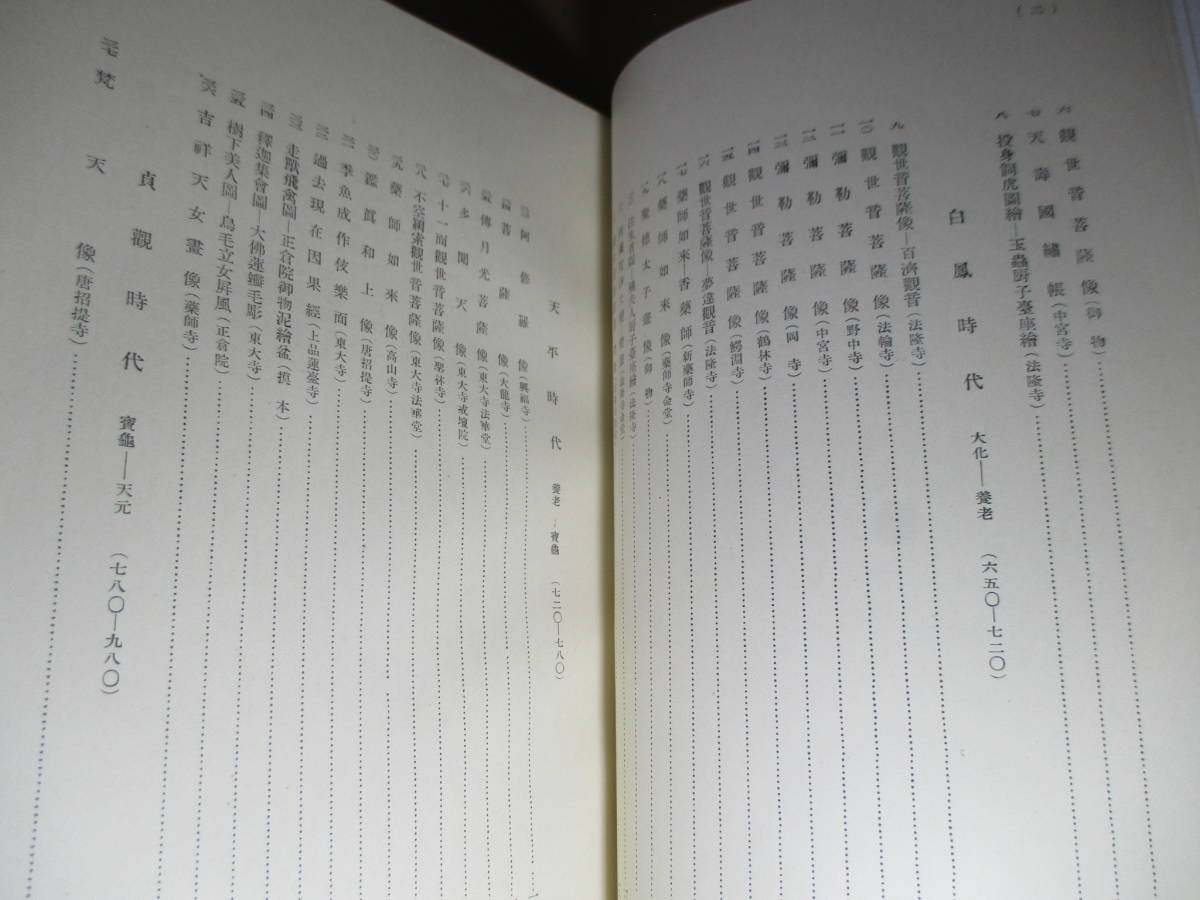 (二)
六 觀世音菩薩像(御物)
七 天壽國繡帳(中宮寺)
八 投身飼虎圖繪—玉蟲厨子臺座繪(法隆寺)
白鳳時代 大化—養老 (六五〇—七二〇)
九 觀世音菩薩像—百濟觀音(法隆寺)
一〇 觀世音菩薩像(法輪寺)
一一 彌勒菩薩像(野中寺)
一二 彌勒菩薩像(中宮寺)
一三 彌勒菩薩像(岡寺)
一四 觀世音菩薩像(鶴林寺)
一五 觀世音菩薩像(鰐淵寺)
一六 觀世音菩薩像—夢違觀音(法隆寺)
一七 藥師如來—香藥師(新藥師寺)
一八 藥師如來像(藥師寺金堂)
一九 聖德太子畫像(御物)
天平時代 養老—寶龜 (七二〇—七八〇)
阿修羅像(興福寺)
菩薩像(大龍寺)
傳月光菩薩像(東大寺法華堂)
多聞天像(東大寺戒壇院)
十一面觀世音菩薩像(聖林寺)
不空羂索觀世音菩薩像(東大寺法華堂)
藥師如來像(高山寺)
鑑眞和上像(唐招提寺)
季魚成作伎樂面(東大寺)
過去現在因果經(上品蓮臺寺)
走獸飛禽圖—正倉院御物泥繪盆(摸本)
釋迦集會圖—大佛蓮瓣毛彫(東大寺)
樹下美人圖—鳥毛立女屏風(正倉院)
吉祥天女畫像(藥師寺)
貞觀時代 寶龜—天元 (七八〇—九八〇)
梵天像(唐招提寺)